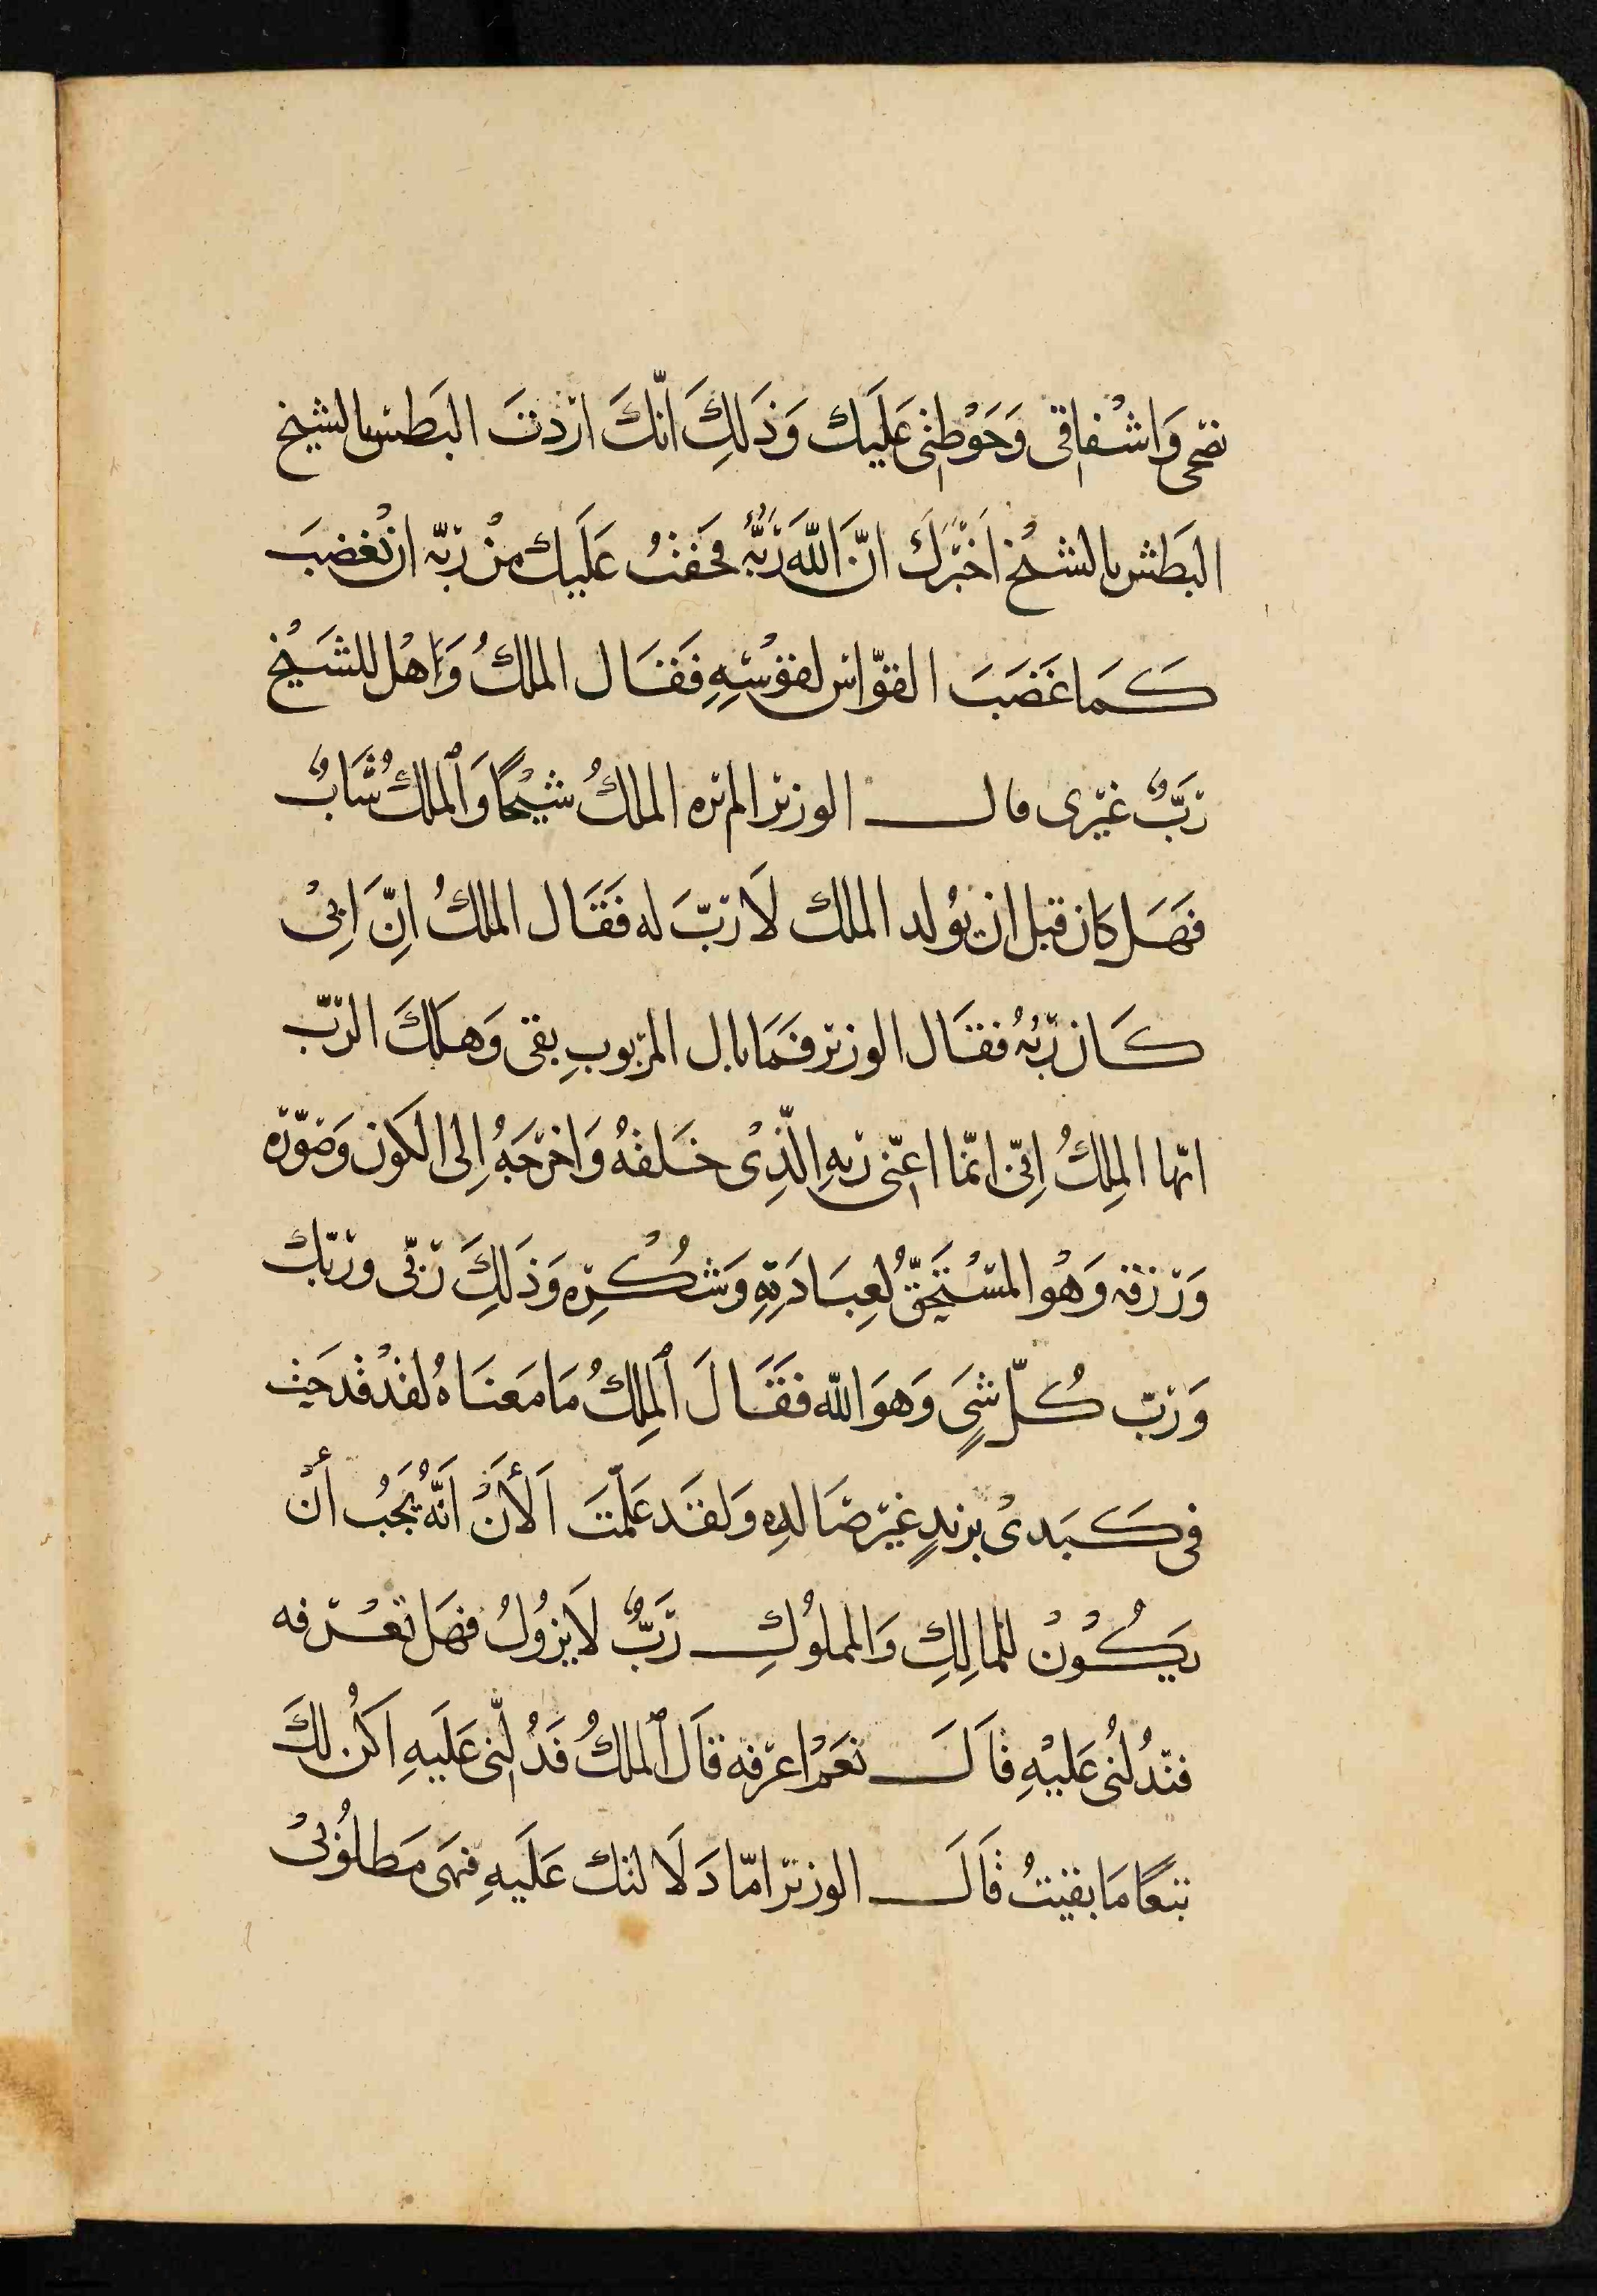 نصحى وَاشْفاقى وَحَوْطتى عَلَيك وَذَلِكَ انّكَ اردْتَ البَطش بالشيخ
البَطش بالشيْخ اخبَرَكَ انّ اللّهَ رَبّهُ فخَفتُ عَلَيك منْ ربّه ان تغضبَ
كَمَا غَضَبَ القوّاسُ لقوْسِهِ فَقَال الملكُ وَاهْل للشَيْخ
رَبٌّ غيْرى قال الوزير الم تره الملكُ شيْخًا وَالملكُ شَابٌّ
فَهَل كان قبل ان يوْلد الملك لَا ربّ له فَقَال الملكُ انِّ ابىْ
كَان ربّهُ فقَال الوزير فَمَا بال المربوبِ بقى وَهلَكَ الربّ
ايّها الملِكُ اِنّى انّما اعنّى ربهِ الّذِىْ خَلقهُ وَاخرَجَهُ اِلى الكون وَصَوّره
وَرَزقه وَهْو المسْتَحَقّ لعِبَادَتِهِ وَشُكْرِه وَذَلِكَ رَبّى وربّك
وَرَبّ كُلّ شىٍ وَهوَ اللّه فَقَالَ الملِكُ مَا معنَاهُ لقدْ قدَحت
فى كَبَدىْ بزندٍ غيْر صَالدِه وَلقَد عَلّمتَ اَلأَنْ انّهُ يَجَبُ أنْ
يَكُوْنْ للمالِكِ وَالمملوُكِ رَبٌّ لَا يزُوْلُ فهَل تعْرفه
فتدُلنُى عَليْهِ قاَلَ نعَمْ اعرفه قاَل الملكُ فَدُلّنى عَلَيهِ اكُن لكَ
تبعًا مَا بقيتُ قاَلَ الوزير امّا دَلَا لتك عَلَيهِ فهى مَطلُوْبىْ